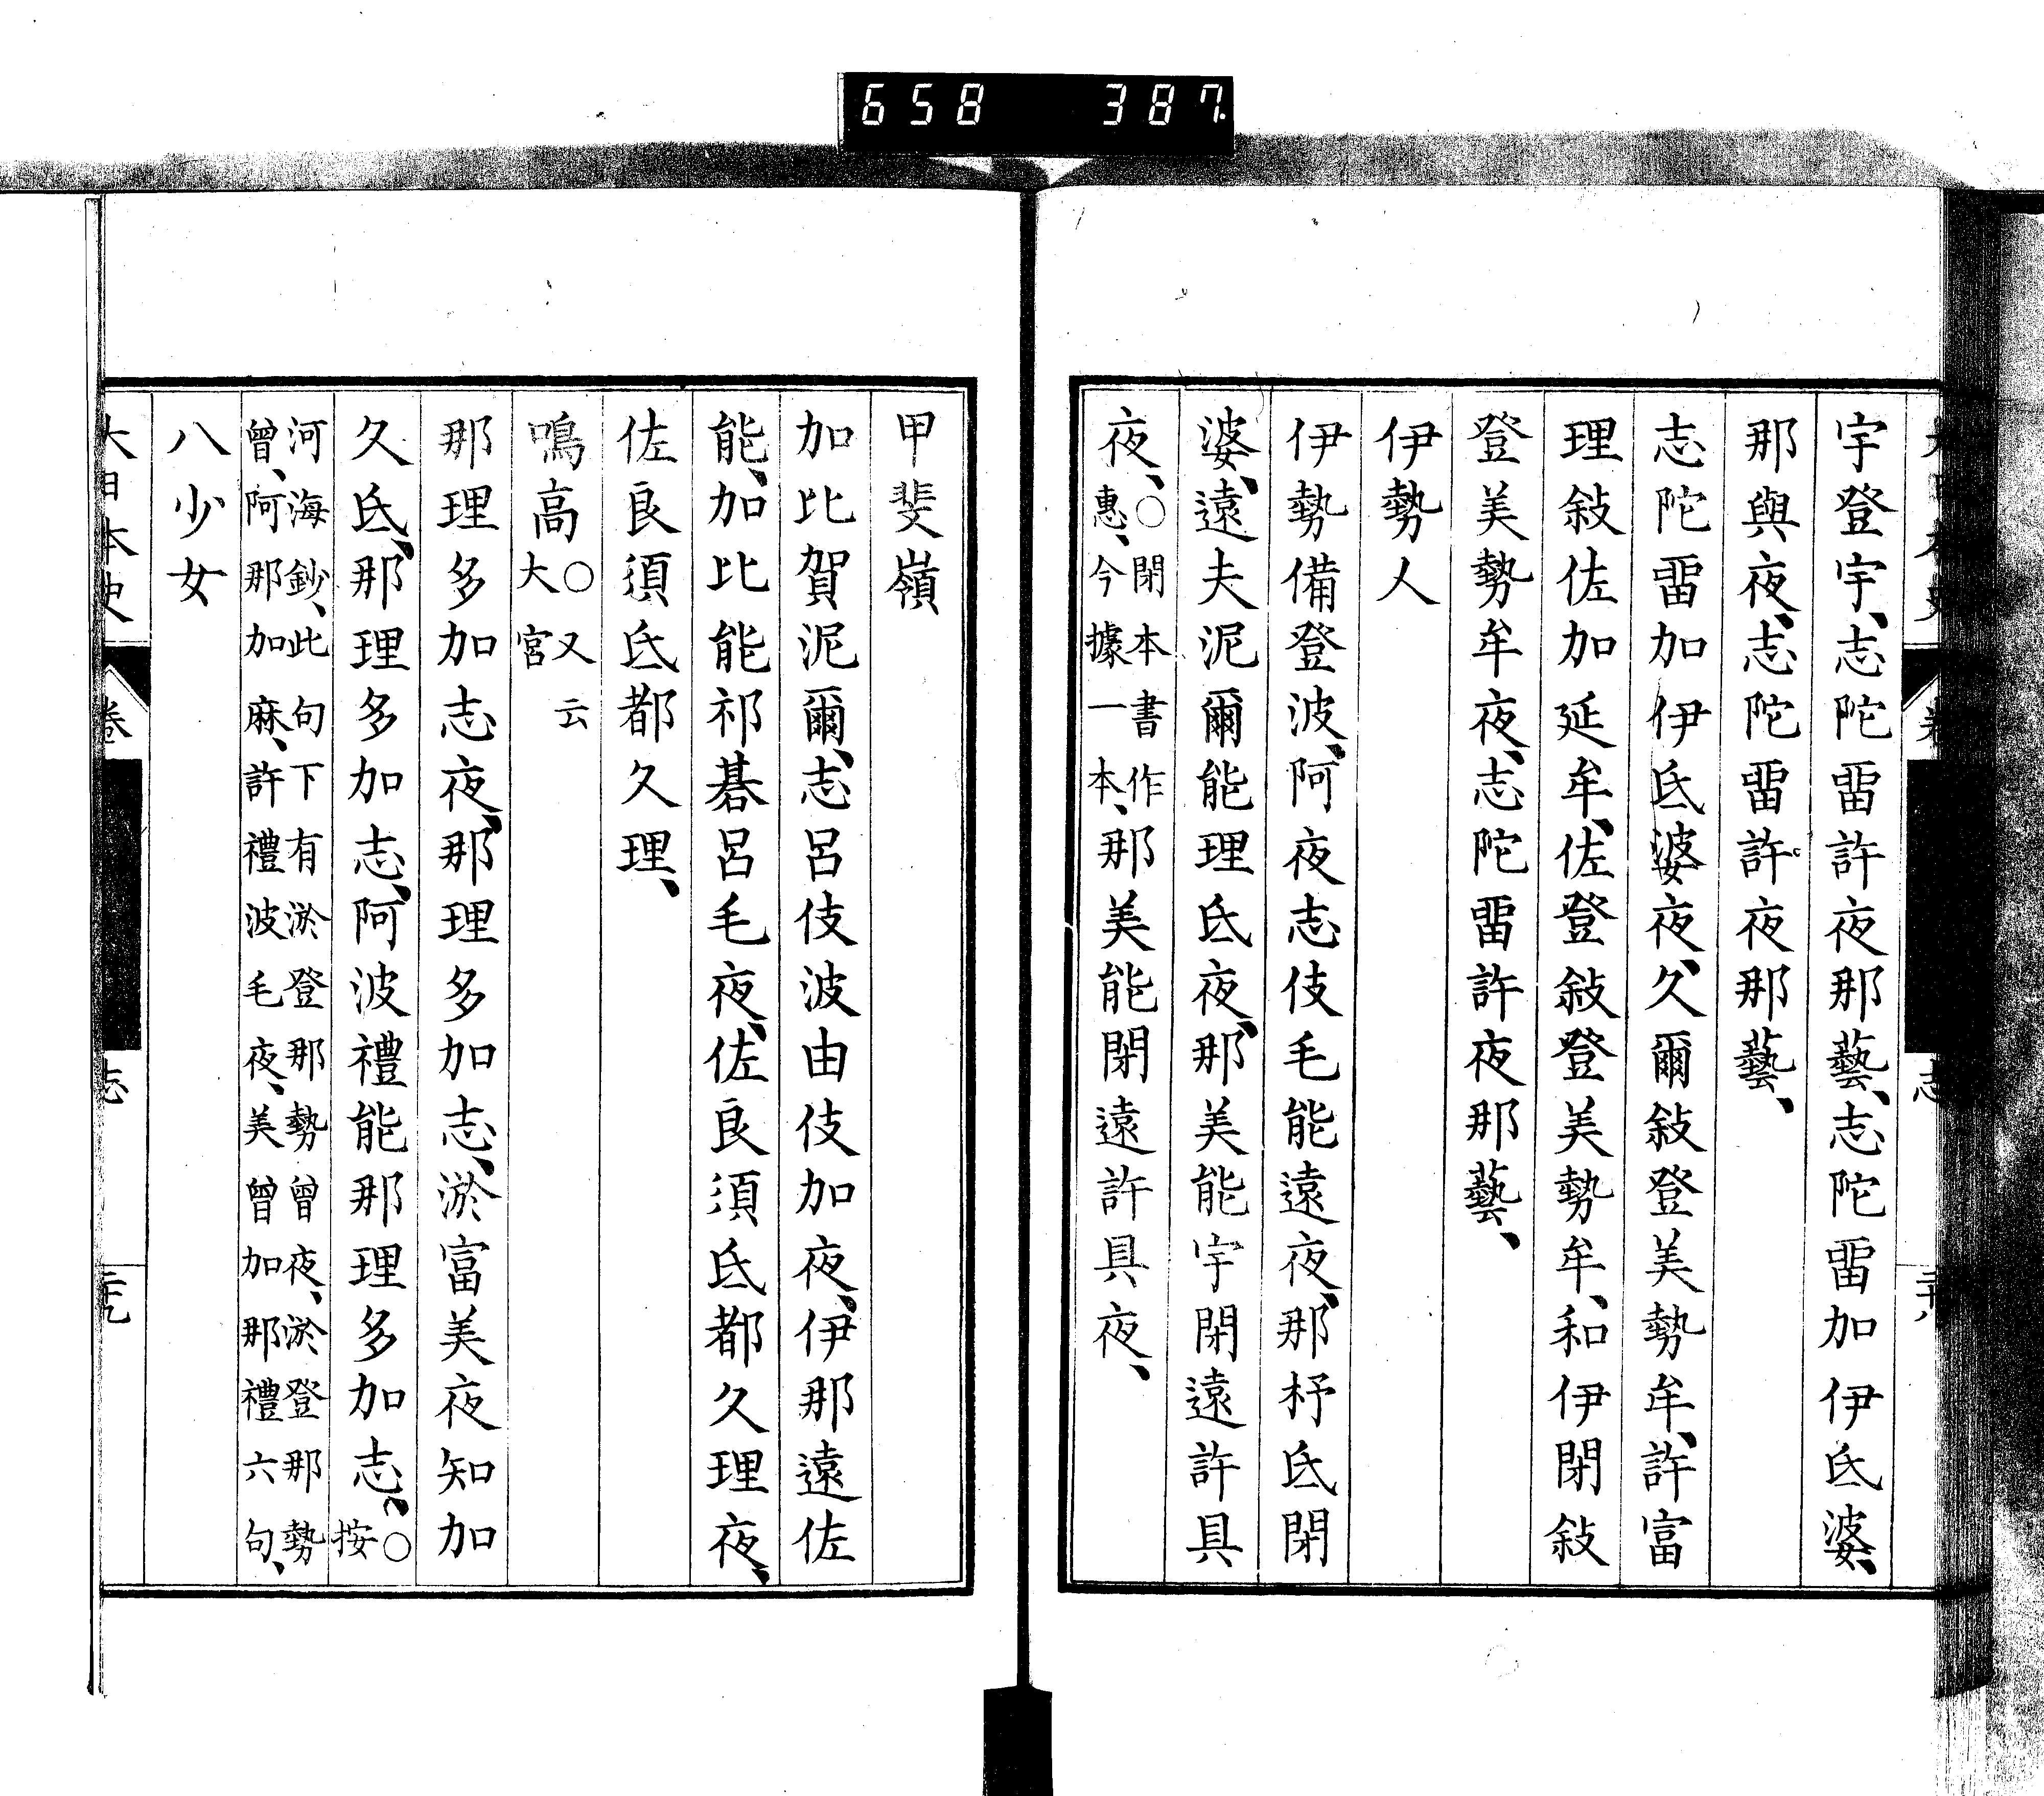 658 387
宇登宇、志陀畱許夜那藝、志陀畱加伊氐婆、
那與夜、志陀畱許夜那藝、
志陀畱加伊氐婆夜、久爾敍登美勢牟、許富
理敍佐加延牟、佐登敍登美勢牟、和伊閇敍
登美勢牟夜、志陀畱許夜那藝、
伊勢人
伊勢備登波、阿夜志伎毛能遠夜、那杼氐閇
婆、遠夫泥爾能理氐夜、那美能宇閇遠許具
夜、○閇本書作惠、今據一本、那美能閇遠許具夜、
甲斐嶺
加比賀泥爾、志呂伎波由伎加夜、伊那遠佐
能、加比能祁碁呂毛夜、佐良須氐都久理夜、
佐良須氐都久理、
鳴高○又云大宮
那理多加志夜、那理多加志、淤富美夜知加
久氐、那理多加志、阿波禮能那理多加志、○按
河海鈔、此句下有淤登那勢曾夜、淤登那勢
曾、阿那加麻、許禮波毛夜、美曾加那禮六句、
八少女
大日本史 卷 志